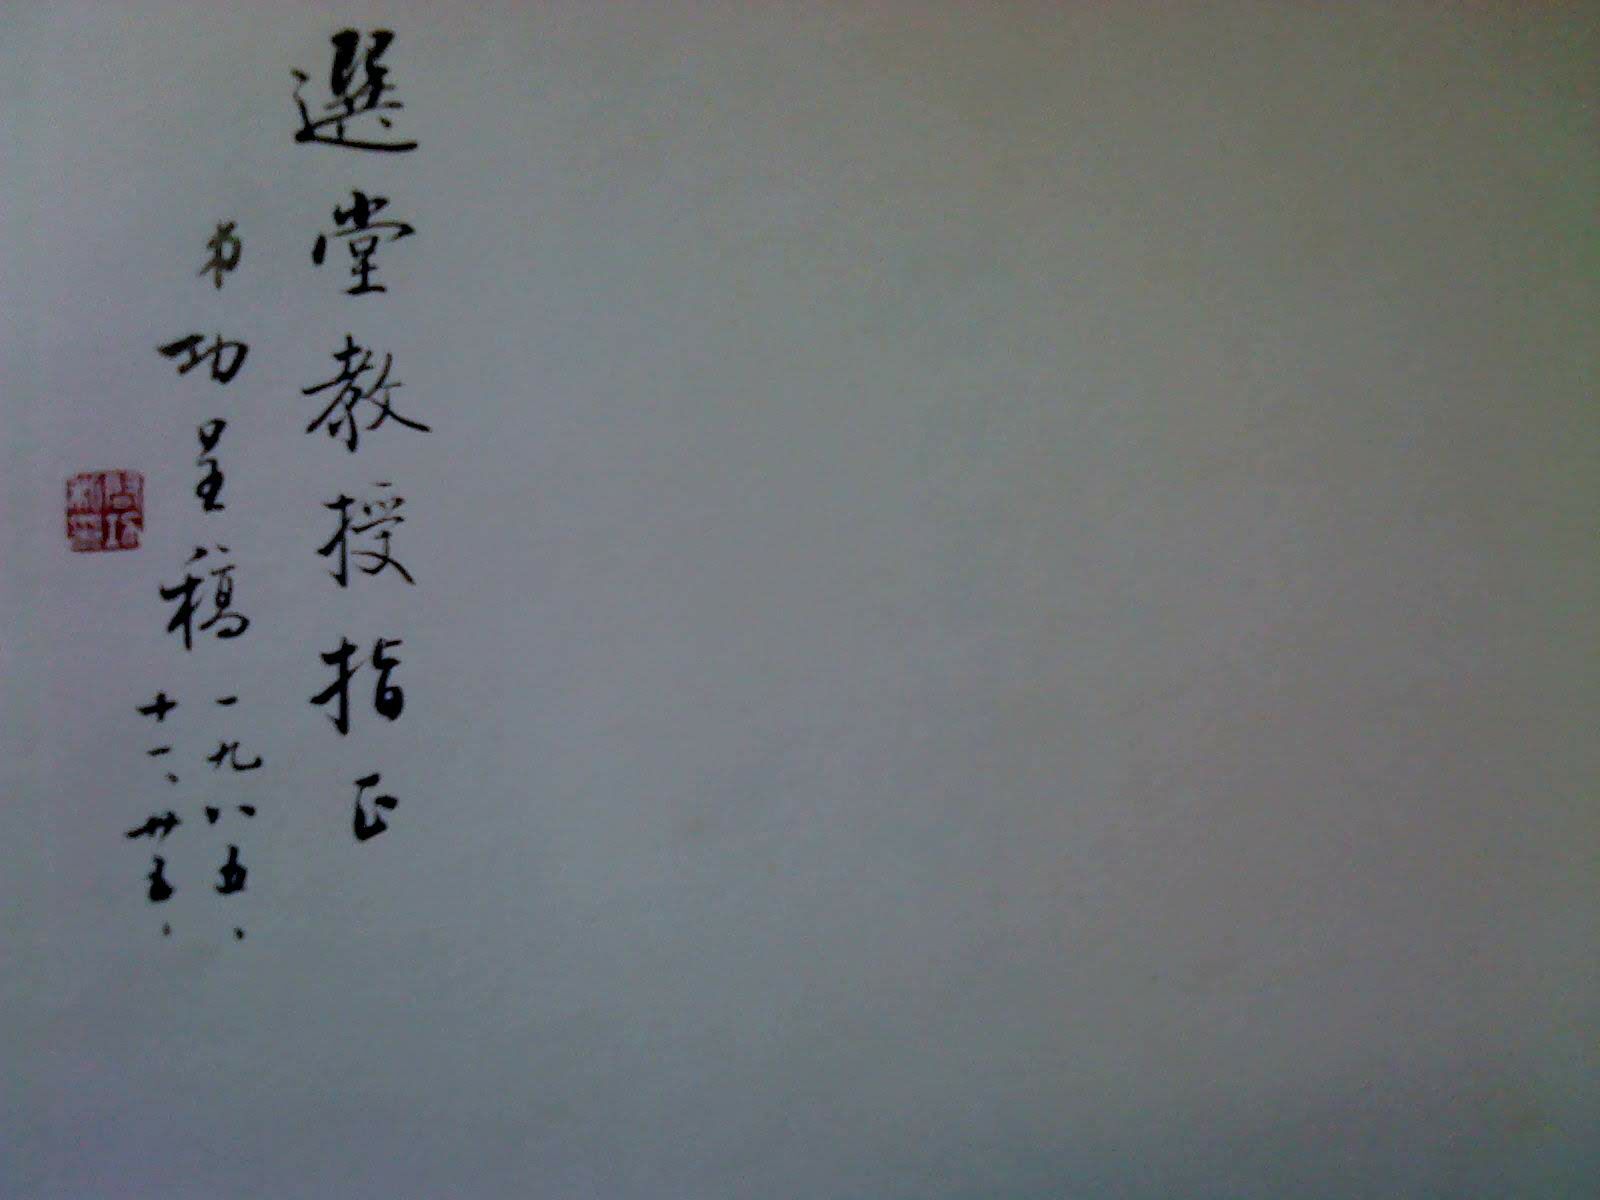 選堂教授指正
弟功呈稿
一九八五、
十一、廿五、